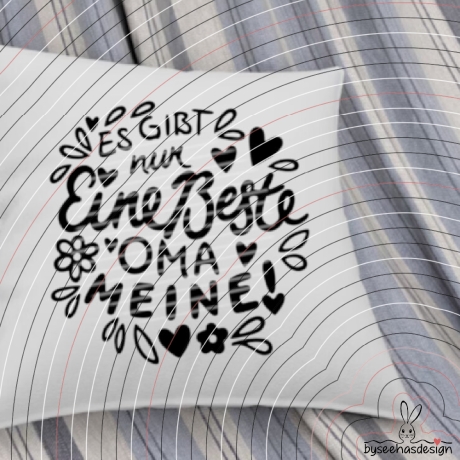 ES GIBT
nur
Eine Beste
OMA
MEINE!
byseehasdesign